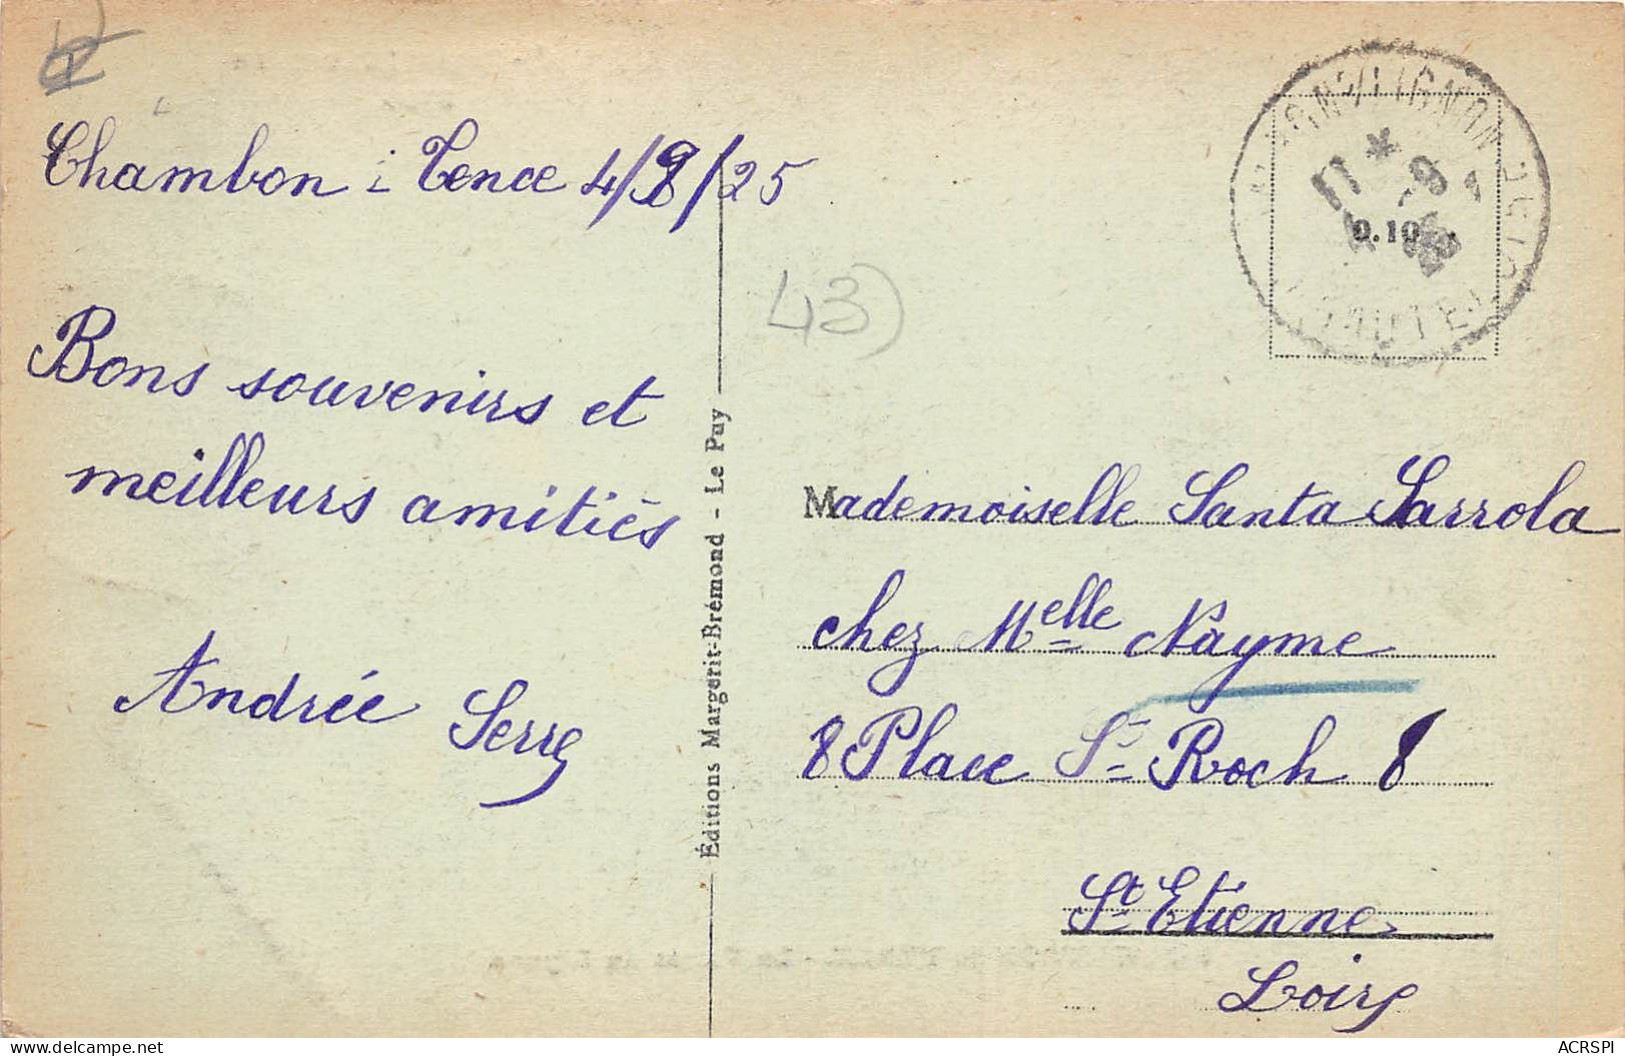 Chambon : Tence 4/9/25
Bons souvenirs et
meilleurs amitiés
Andrée Serre
Éditions Margerit-Brémond - Le Puy
43)
0.10
Mademoiselle Santa Sarrola
chez Melle Nayme
8 Place St Roch 8
St Etienne
Loire
ACRSPI